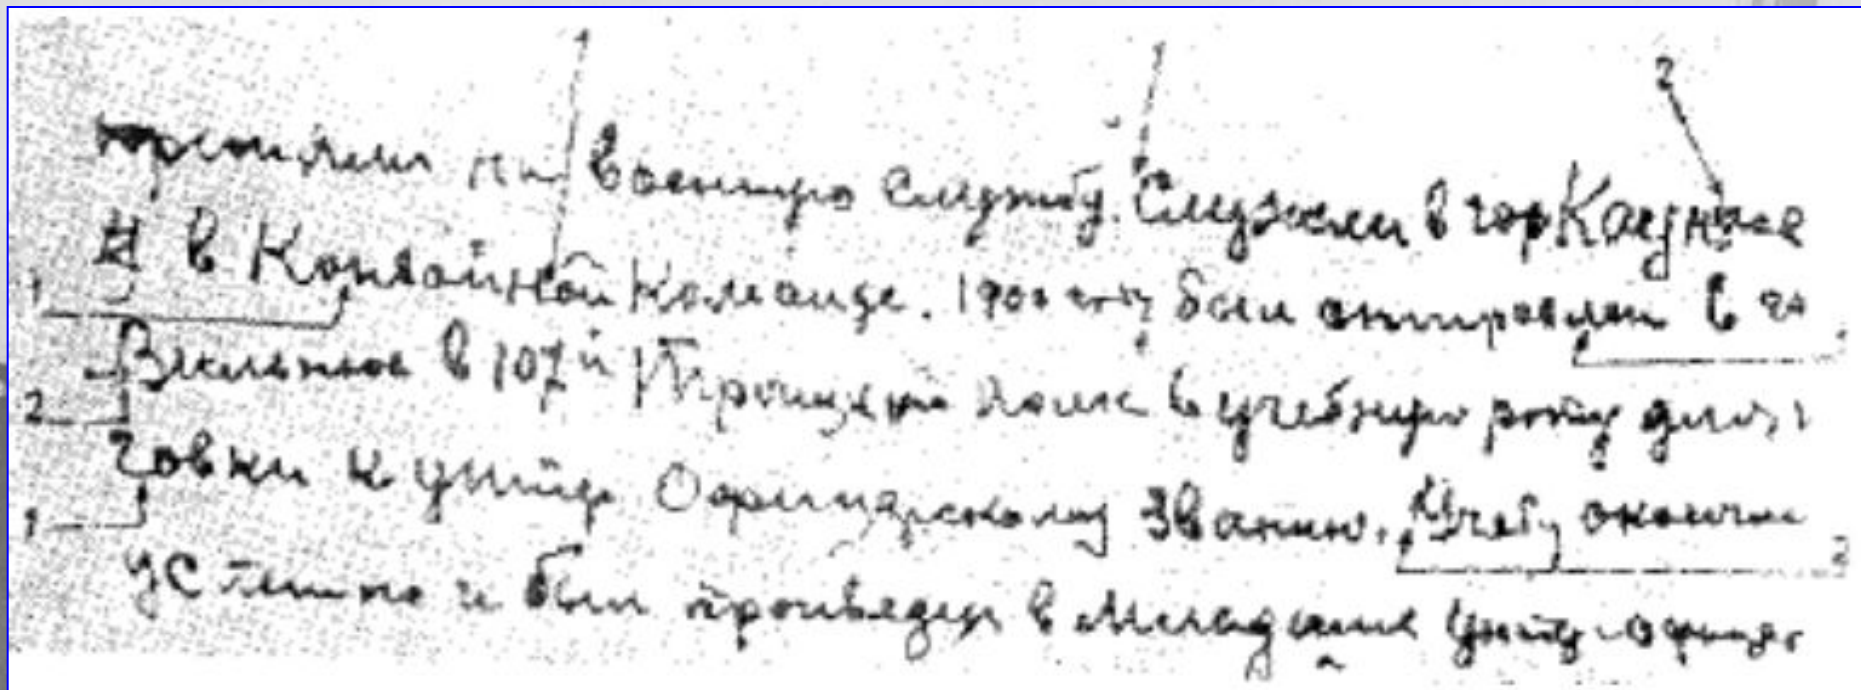 на военную службу. Служил в гор Каунасе
в Конвойной Команде. 1900 году был отправлен в го
Вильнюс в 107й Троицкий полк в учебную роту для
товки к унтер Офицерскому Званию. Учебу окончил
успешно и был произведен в Младшие унтер-офицер